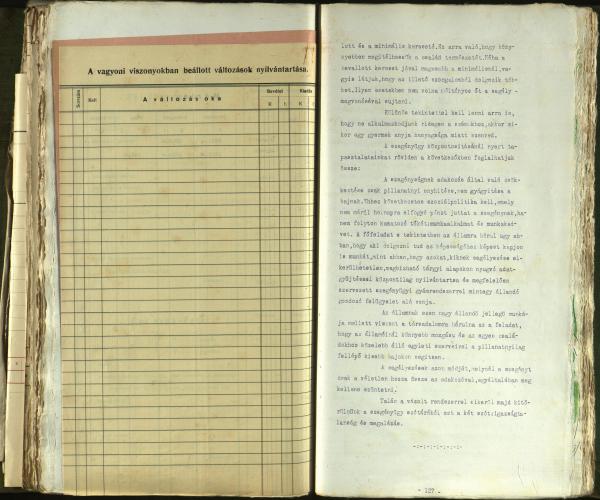 A vagyoni viszonyokban beállott változások nyilvántartása.
Sorszám
Kelt
A változás oka
Bevétel
Kiadás
K
f.
K
lott és a minimális kereseté. Ez arra való, hogy köny-
nyebben megitélhessük a család természetét. Néha a
bevallott kereset jóval magasabb a minimálisnál, va-
gyis látjuk, hogy az illető szorgalomból dolgozik töb-
bet. Ilyen esetekben nem volna méltányos őt a segély
megvonásával sujtani.
Különös tekintettel kell lenni arra is,
hogy ne alkalmazkodjunk ridegen a számokhoz, akkor mi-
kor egy gyermek anyja hanyagsága miatt szenved.
A szegényügy központositásánál nyert ta-
pasztalatainkat röviden a következőkben foglalhatjuk
össze:
A szegénységnek adakozás által való csök-
kentése csak pillanatnyi enyhitése, nem gyógyitása a
bajnak. Ehhez következetes szociálpolitika kell, amely
nem máról holnapra elfogyó pénzt juttat a szegénynek, ha-
nem folyton kamatozó tőkét: munkaalkalmat és munkaked-
vet. A főfeladat e tekintetben az államra hárul ugy ab-
ban, hogy aki dolgozni tud az képességéhez képest kapjon
is munkát, mint abban, hogy azokat, kiknek segélyezése el-
kerülhetetlen, megbizható tárgyi alapokon nyugvó adat-
gyüjtéssel központilag nyilvántartsa és megfelelően
szervezett szegényügyi gyámrendszerrel mintegy állandó
gondozó felügyelet alá vonja.
Az államnak ezen nagy állandó jellegü munká-
ja mellett viszont a társadalomra hárulna az a feladat,
hogy az államéinál könnyebb mozgásu és az egyes csalá-
dokhoz közelebb álló egyleti szerveivel a pillanatnyilag
fellépő kisebb bajokon segitsen.
A segélyezések azon módját, melynél a szegényt
csak a véletlen hozza össze az adakozóval, egyáltalában meg
kellene szüntetni.
Talán a vázolt rendszerrel sikerül majd kitö-
rülnünk a szegényügy szótárából ezt a két szót: igazságta-
lanság és megalázás.
-:-:-:-:-:-:-
- 127 -